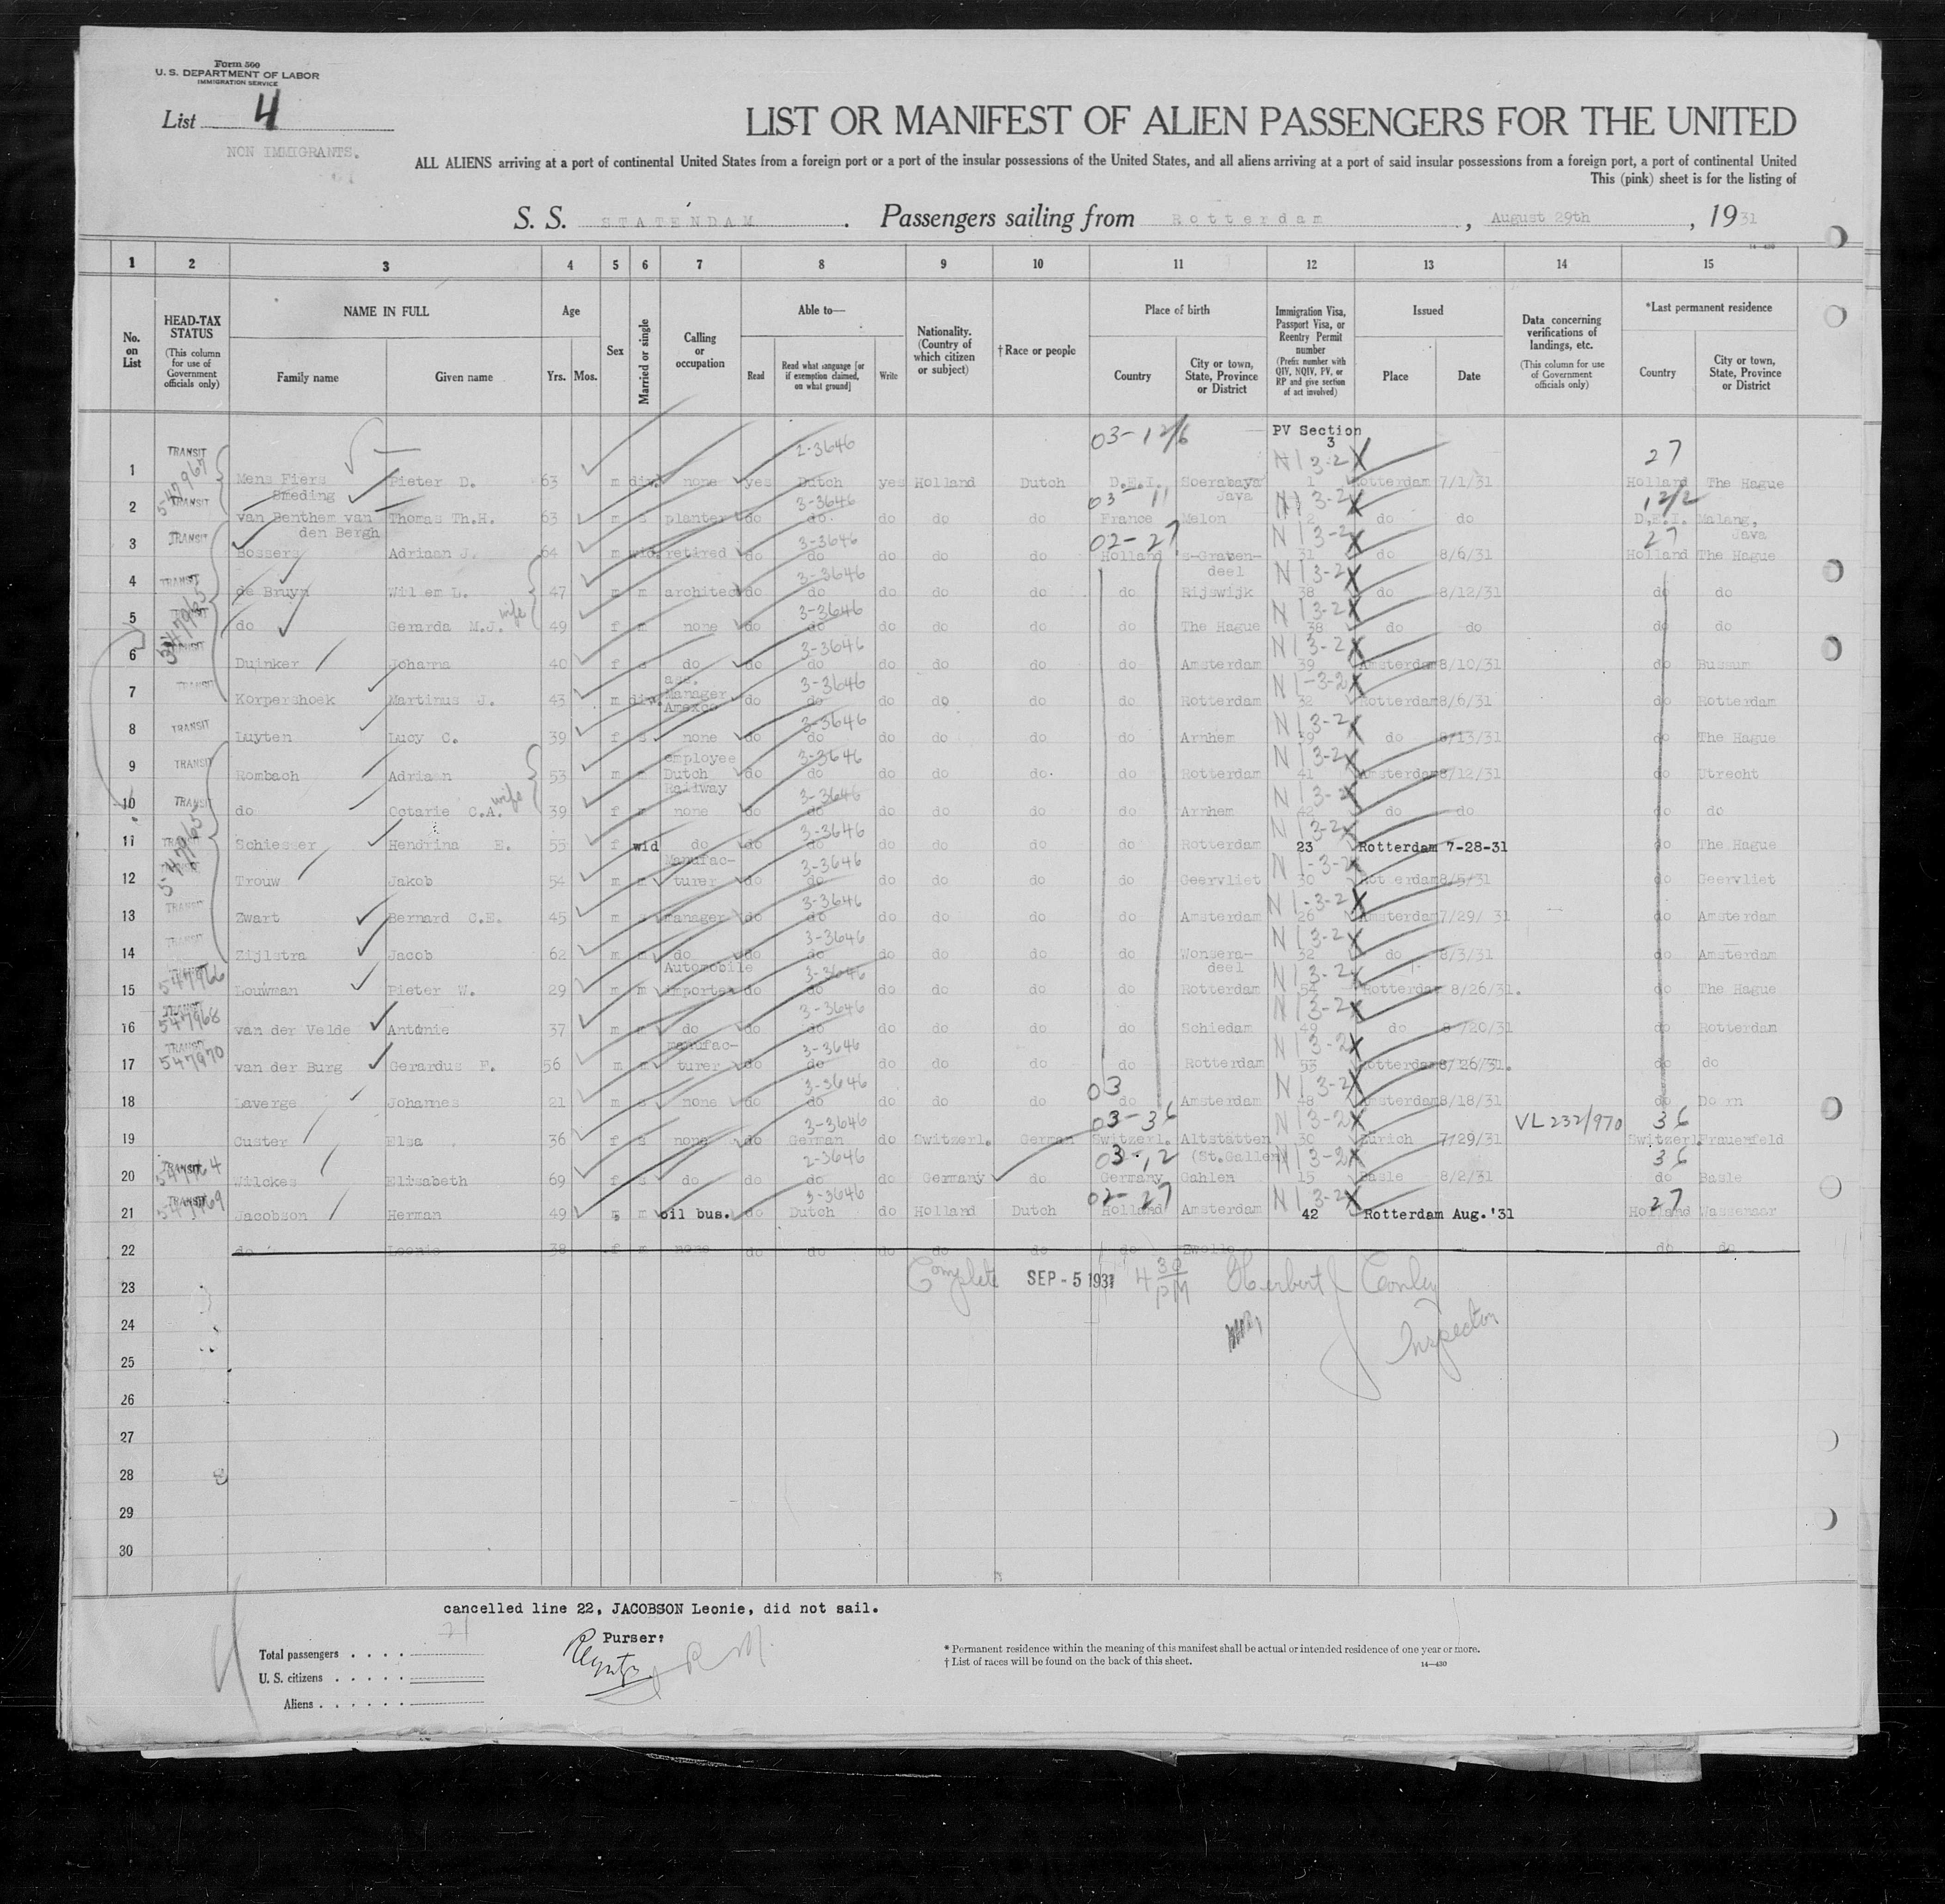 Form 500
U. S. DEPARTMENT OF LABOR
IMMIGRATION SERVICE
List 4
NON IMMIGRANTS.
LIST OR MANIFEST OF ALIEN PASSENGERS FOR THE UNITED
ALL ALIENS arriving at a port of continental United States from a foreign port or a port of the insular possessions of the United States, and all aliens arriving at a port of said insular possessions from a foreign port, a port of continental United
This (pink) sheet is for the listing of
S. S. STATENDAM. Passengers sailing from Rotterdam, August 29th, 1931
14-430
1 2 3 4 5 6 7 8 9 10 11 12 13 14 15
No. on List
HEAD-TAX STATUS (This column for use of Government officials only)
NAME IN FULL Family name Given name
Age Yrs. Mos.
Sex
Married or single
Calling or occupation
Able to— Read Read what language [or if exemption claimed, on what ground] Write
Nationality. (Country of which citizen or subject)
†Race or people
Place of birth Country City or town, State, Province or District
Immigration Visa, Passport Visa, or Reentry Permit number (Prefix number with QIV, NQIV, PV, or RP and give section of act involved)
Issued Place Date
Data concerning verifications of landings, etc. (This column for use of Government officials only)
*Last permanent residence Country City or town, State, Province or District
PV Section 3
03-12/6 2-3646 27
1 TRANSIT 547967 Mens Fiers Smeding Pieter D. 63 m div. none yes Dutch yes Holland Dutch D.E.I. Soerabaya Java N13-2 1 Rotterdam 7/1/31 Holland The Hague
2 TRANSIT van Benthem van den Bergh Thomas Th.H. 63 m s planter do 3-3646 do do do do 03-11 France Melon N13-2 2 do do 12/2 D.E.I. Malang, Java
3 TRANSIT Bossers Adriaan J. 64 m wid retired do 3-3646 do do do do 02-27 Holland s-Graven-deel N13-2 31 do 8/6/31 27 Holland The Hague
4 TRANSIT de Bruyn Willem L. 47 m m architect do 3-3646 do do do do do Rijswijk N13-2 38 do 8/12/31 do do
5 do Gerarda M.J. wife 49 f m none do 3-3646 do do do do do The Hague N13-2 38 do do do do
6 Duinker Johanna 40 f s do do 3-3646 do do do do do Amsterdam N13-2 39 Amsterdam 8/10/31 do Bussum
7 TRANSIT Korpershoek Martinus J. 43 m div. ass. Manager Amexco do 3-3646 do do do do do Rotterdam N1-3-2 32 Rotterdam 8/6/31 do Rotterdam
8 TRANSIT Luyten Lucy C. 39 f s none do 3-3646 do do do do do Arnhem N13-2 39 do 8/13/31 do The Hague
9 TRANSIT Rombach Adriaan 53 m employee Dutch Railway do 3-3646 do do do do do Rotterdam N13-2 41 Amsterdam 8/12/31 do Utrecht
10 TRANSIT do Cotarie C.A. wife 39 f m none do 3-3646 do do do do do Arnhem N13-2 42 do do do do
11 TRANSIT Schiesser Hendrina E. 55 f wid do do 3-3646 do do do do do Rotterdam N13-2 23 Rotterdam 7-28-31 do The Hague
12 Trouw Jakob 54 m m Manufac-turer do 3-3646 do do do do do Geervliet N1-3-2 30 Rotterdam 8/5/31 do Geervliet
13 TRANSIT Zwart Bernard C.E. 45 m manager do 3-3646 do do do do do Amsterdam N1-3-2 26 Amsterdam 7/29/31 do Amsterdam
14 TRANSIT Zijlstra Jacob 62 m m do do 3-3646 do do do do do Wonsera-deel N13-2 32 do 8/3/31 do Amsterdam
15 547966 Louwman Pieter W. 29 m m Automobile importer do 3-3646 do do do do do Rotterdam N13-2 54 Rotterdam 8/26/31. do The Hague
16 547968 van der Velde Antonie 37 m do do 3-3646 do do do do do Schiedam N13-2 49 do 8/20/31 do Rotterdam
17 TRANSIT 547970 van der Burg Gerardus F. 56 m manufac-turer do 3-3646 do do do do do Rotterdam N13-2 53 Rotterdam 8/26/31. do do
18 Laverge Johannes 21 m s none do 3-3646 do do do do 03 do Amsterdam N13-2 48 Amsterdam 8/18/31 do Doorn
19 Custer Elsa 36 f s none do 3-3646 German do Switzerl. German 03-36 Switzerl. Altstätten (St.Gallen) N13-2 30 Zürich 7/29/31 VL 232/970 36 Switzerl. Frauenfeld
20 TRANSIT Wilckes Elisabeth 69 f s do do 2-3646 do do Germany do 03-12 Germany Gahlen N13-2 15 Basle 8/2/31 36 do Basle
21 TRANSIT 547969 Jacobson Herman 49 m m oil bus. do 3-3646 Dutch do Holland Dutch 02-27 Holland Amsterdam N13-2 42 Rotterdam Aug.'31 27 Holland Wassenaar
22 do Leonie 38 f m none do do do do do do Zwolle do do
23 Complete SEP - 5 1931 4 30 PM Herbert J Conley
24 Inspector
25
26
27
28
29
30
cancelled line 22, JACOBSON Leonie, did not sail.
Purser:
Total passengers . . . . 21
U. S. citizens . . . . .
Aliens . . . . . .
* Permanent residence within the meaning of this manifest shall be actual or intended residence of one year or more.
† List of races will be found on the back of this sheet.
14—430